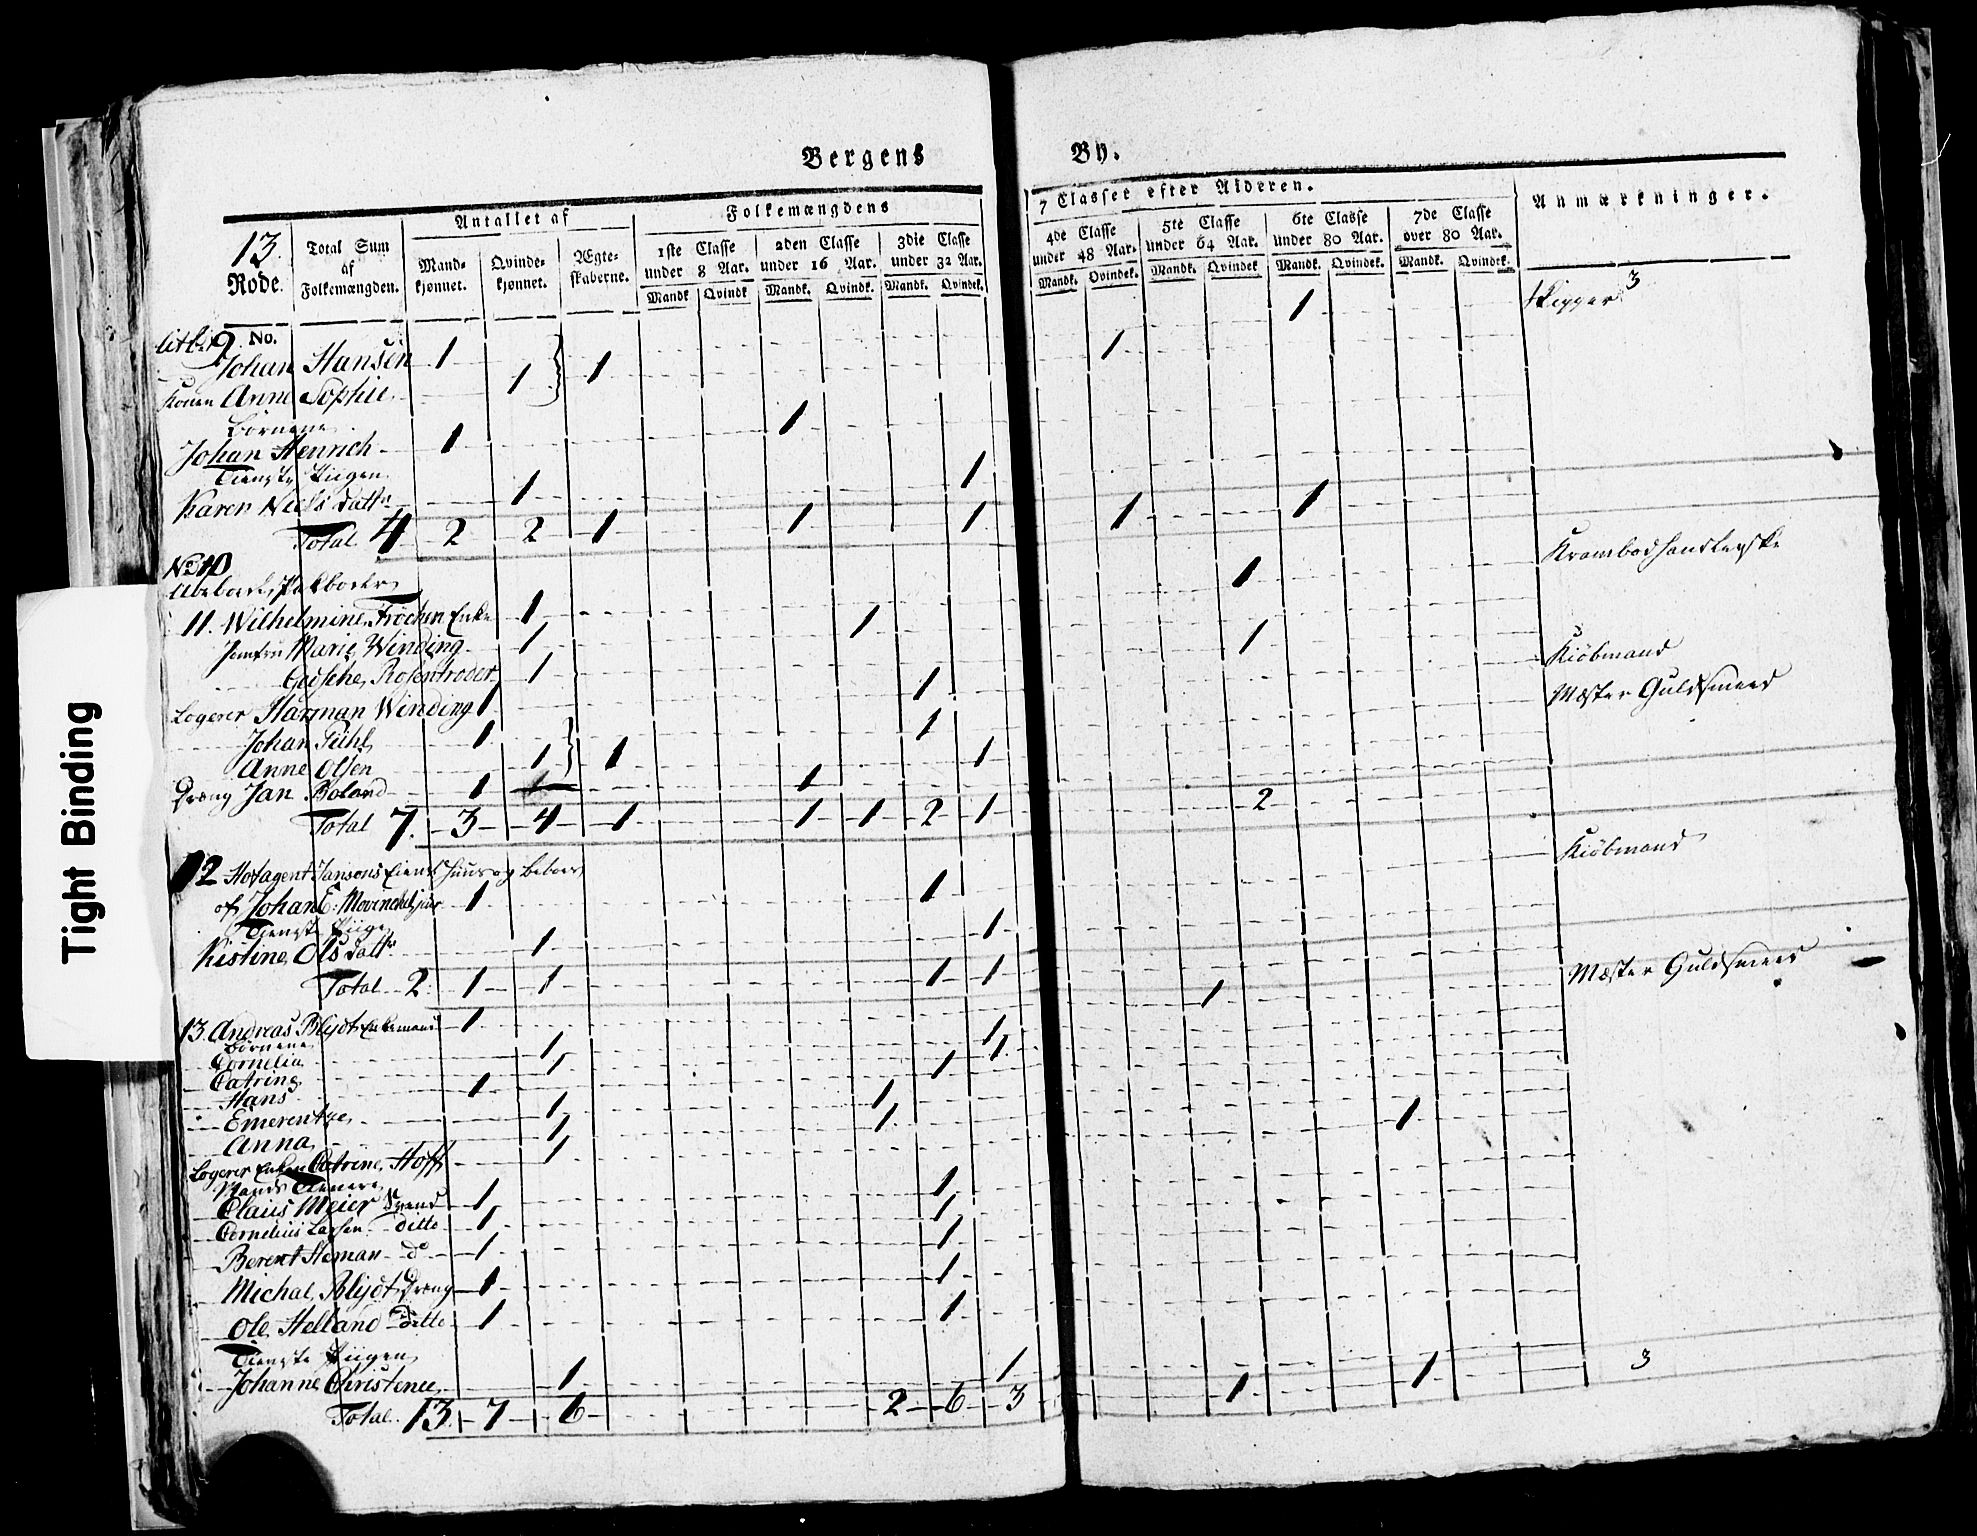 Bergens By.
13. Rode.
Total Sum af Folkemængden.
Antallet af
Mandkjønnet. Qvindekjønnet. Ægteskaberne.
Folkemængdens 7 Classer efter Alderen.
1ste Classe under 8 Aar. 2den Classe under 16 Aar. 3die Classe under 32 Aar. 4de Classe under 48 Aar. 5te Classe under 64 Aar. 6te Classe under 80 Aar. 7de Classe over 80 Aar.
Mandk. Qvindk. Mandk. Qvindk. Mandk. Qvindek. Mandk. Qvindek. Mandk. Qvindek. Mandk. Qvindek. Mandk. Qvindek.
Anmærkninger.
No.
9 Johan Hansen 1 1 1 Skipper 3
Konen Anne Sophie 1 1
Börnene
Johan Henrich 1 1
Tieneste Piigen
Karen Niels Datter 1 1
Total 4 2 2 1 1 1 1 1
No 10
11. Wilhelmine Fröchen Enke 1 1 Krambodhandlerske
Jomfru Marie Winding 1 1
Geische Rosentroder 1 1
Logerer Harman Winding 1 1 Kiöbmand
Johan Pühl 1 1 1 Mester Guldsmeed
Anne Olsen 1 1
Dreng Jan Boland 1 1
Total 7. 3 4 1 1 1 2 1 2
12 Hofagent Jansons Eiende Huus og beboes
af Johan E: Mowinchel jun 1 1 Kiöbmand
Tieneste Piige
Kistine Ols Datter 1 1
Total 2 1 1 1 1
13. Andreas Blydt Enkemand 1 1 Mester Guldsmeed
Börnene
Cornelia 1 1
Catrine 1 1
Hans 1 1
Emerentze 1 1
Anna 1 1
Logerer Enken Catrine Hoff 1 1
Mands Tienere
Claus Meier Svend 1 1
Cornelius Larsen ditto 1 1
Berent Heman do 1 1
Michal Blydt Dreng 1 1
Ole Helland ditto 1 1
Tieneste Piigen
Johanne Christence 1 1
Total 13. 7 6 2 6 3 1 1 3
Tight Binding